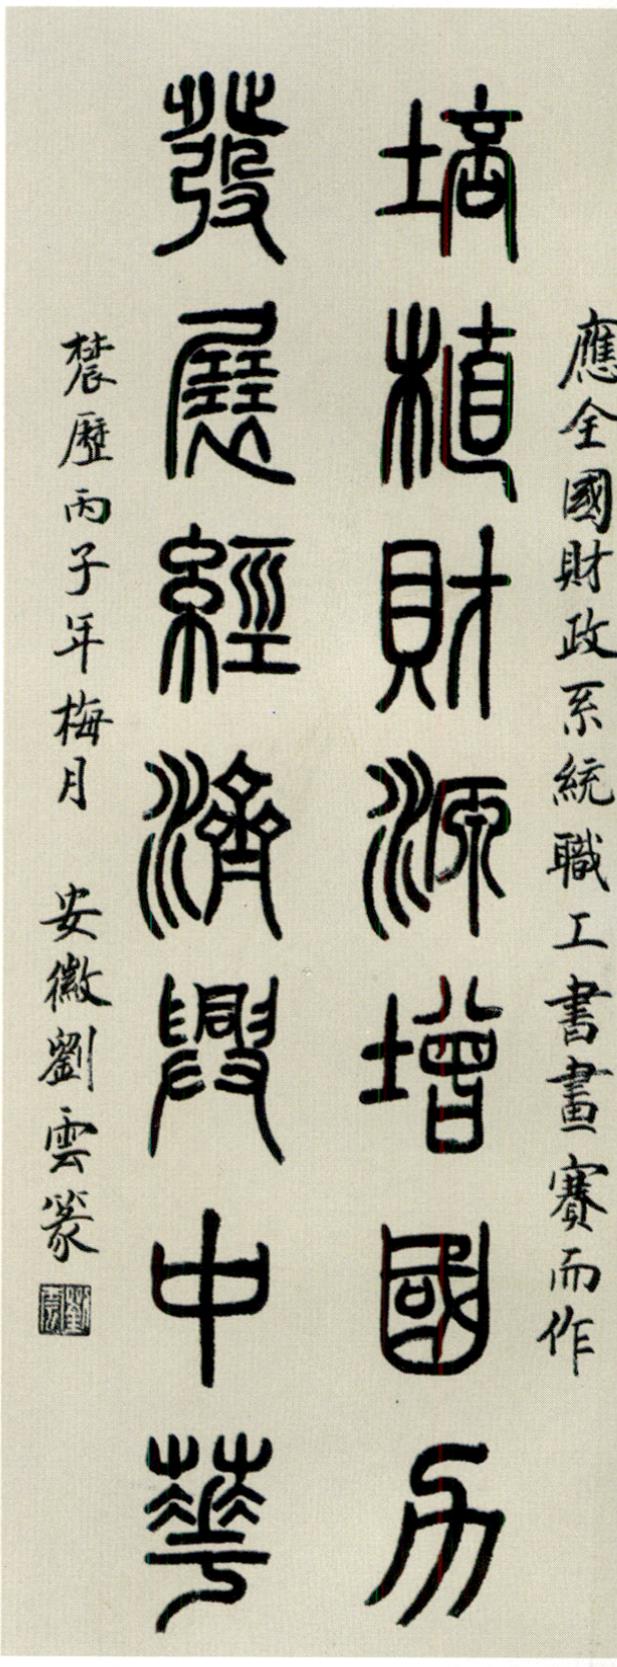 應全國財政系統職工書畫賽而作
培植財源增國力
發展經濟興中華
農歷丙子年梅月 安徽劉雲篆
劉雲